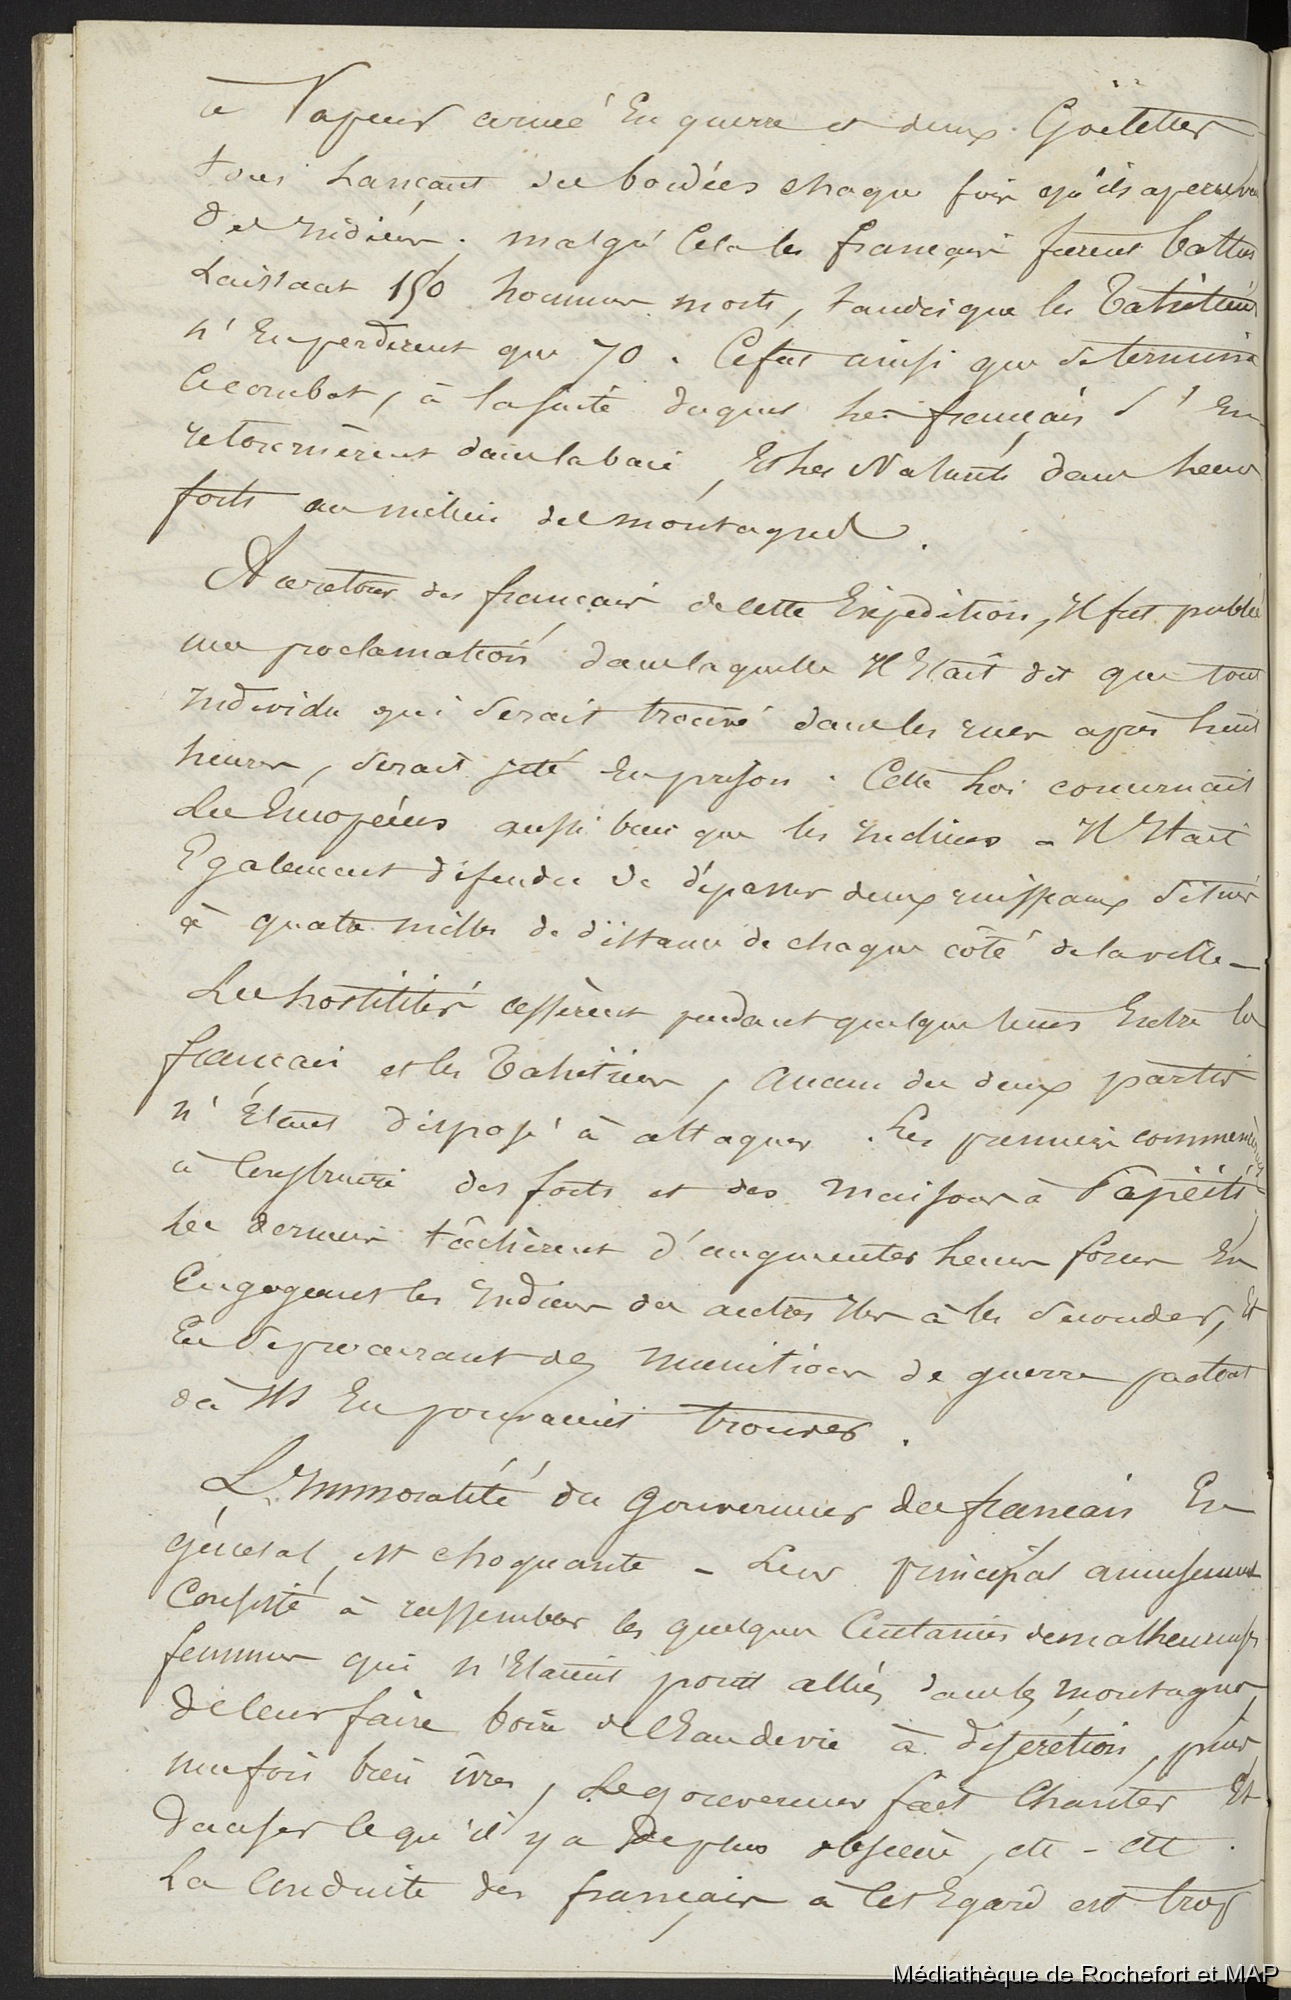 à Vapeur armé En guerre et deux Goëlettes
tous Lançant des bordées chaque fois qu'ils apercev
des Indiens. malgré Cela les français furent battus
Laissant 150 hommes morts, tandis que les Tahitiens
n'En perdirent que 70. Ce fut ainsi que se termina
Ce combat, à la suite duquel les français s'En
retournèrent dans la baie, Et les Naturels dans leurs
forts au milieu des montagnes.
Au retour des français de cette Expédition, Il fut publié
une proclamation dans laquelle Il Etait dit que tout
Individu qui serait trouvé dans les rues après huit
heures, serait jeté En prison. Cette Loi concernait
Les Européens aussi bien que les Indiens - Il Etait
Egalement défendu de dépasser deux ruisseaux situés
à quatre milles de distance de chaque côté de la ville -
Les hostilités cessèrent pendant quelque tems Entre les
français et les Tahitiens, Aucun des deux partis
n'Etant disposé à attaquer. Les premiers commencèrent
à Construire des forts et des maisons à Papéïti
les derniers tâchèrent d'augmenter leurs forces En
Engageant les Indiens des autres Iles à les seconder, Et
En se procurant des munitions de guerre partout
où Ils En pouvaient trouver.
L'Immoralité du Gouverneur des français En
général, est choquante - Leur principal amusement
Consiste à rassembler les quelques Centaines de malheureuses
femmes qui n'Etaient point allées dans les montagnes,
de leur faire boire de l'Eau de vie à discrétion, puis,
une fois bien ivres, Le gouverneur fait Chanter Et
danser ce qu'il y a De plus obscène, etc - etc.
La Conduite des français à cet Egard est trop
Médiathèque de Rochefort et MAP